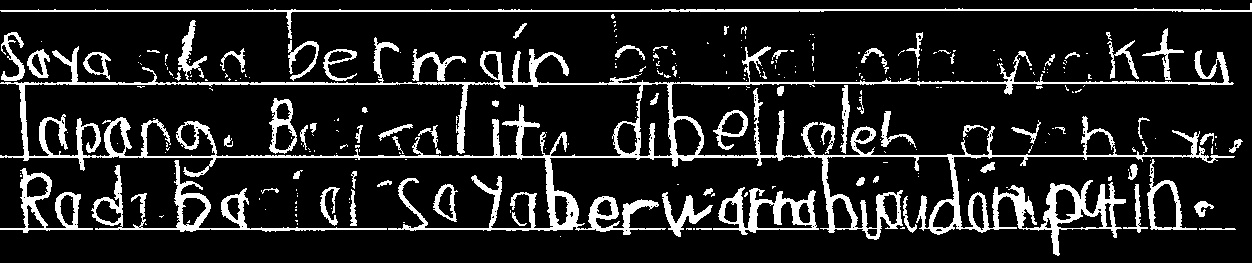 Saya suka bermain basikal pada waktu
lapang. Basikal itu dibeli oleh ayah saya.
Rada basikal saya berwarna hijau dan putih.